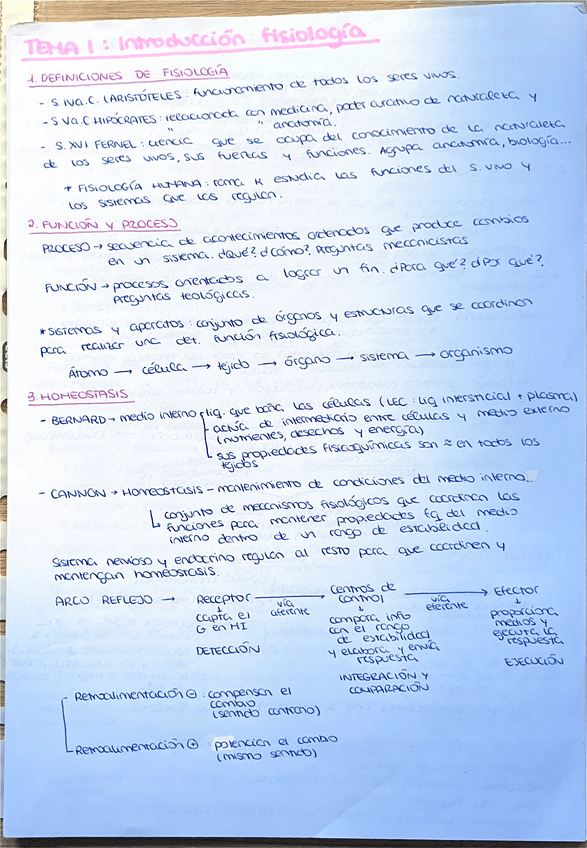 TEMA 1: Introducción fisiología
1. DEFINICIONES DE FISIOLOGÍA
- S. IV a.C. (ARISTÓTELES: funcionamiento de todos los seres vivos.
- S V a.C HIPÓCRATES: relacionada con medicina, poder curativo de naturaleza y
" " anatomía.
- S. XVI FERNEL: ciencia que se ocupa del conocimiento de la naturaleza
de los seres vivos, sus fuerzas y funciones. Agrupa anatomía, biología...
* FISIOLOGÍA HUMANA: rama k estudia las funciones del s. vivo y
los sistemas que las regulan.
2. FUNCIÓN Y PROCESO
PROCESO → secuencia de acontecimientos ordenados que produce cambios
en un sistema. ¿Qué? ¿Cómo? Preguntas mecanicistas
FUNCIÓN → procesos orientados a lograr un fin. ¿Para qué? ¿Por qué?
Preguntas teológicas.
* Sistemas y aparatos: conjunto de órganos y estructuras que se coordinan
para realizar una det. función fisiológica.
Átomo → célula → tejido → órgano → sistema → organismo
3. HOMEOSTASIS
- BERNARD → medio interno liq. que baña las células (LEC: liq intersticial + plasma)
actúa de intermediario entre células y medio externo
(nutrientes, desechos y energía)
sus propiedades fisicoquímicas son ≈ en todos los
tejidos
- CANNON → Homeostasis - mantenimiento de condiciones del medio interno...
conjunto de mecanismos fisiológicos que coordinan las
funciones para mantener propiedades fq del medio
interno dentro de un rango de estabilidad.
Sistema nervioso y endocrino regulan al resto para que coordinen y
mantengan homeostasis.
ARCO REFLEJO → Receptor → Centros de → Efector
vía control vía
aferente eferente
↓ ↓ ↓
capta el compara info proporciona
G en MI con el rango medios y
de estabilidad ejecuta la
DETECCIÓN y elabora y envía respuesta
respuesta
EJECUCIÓN
INTEGRACIÓN Y
COMPARACIÓN
- Retroalimentación ⊖: compensan el
cambio
(sentido contrario)
- Retroalimentación ⊕: potencian el cambio
(mismo sentido)